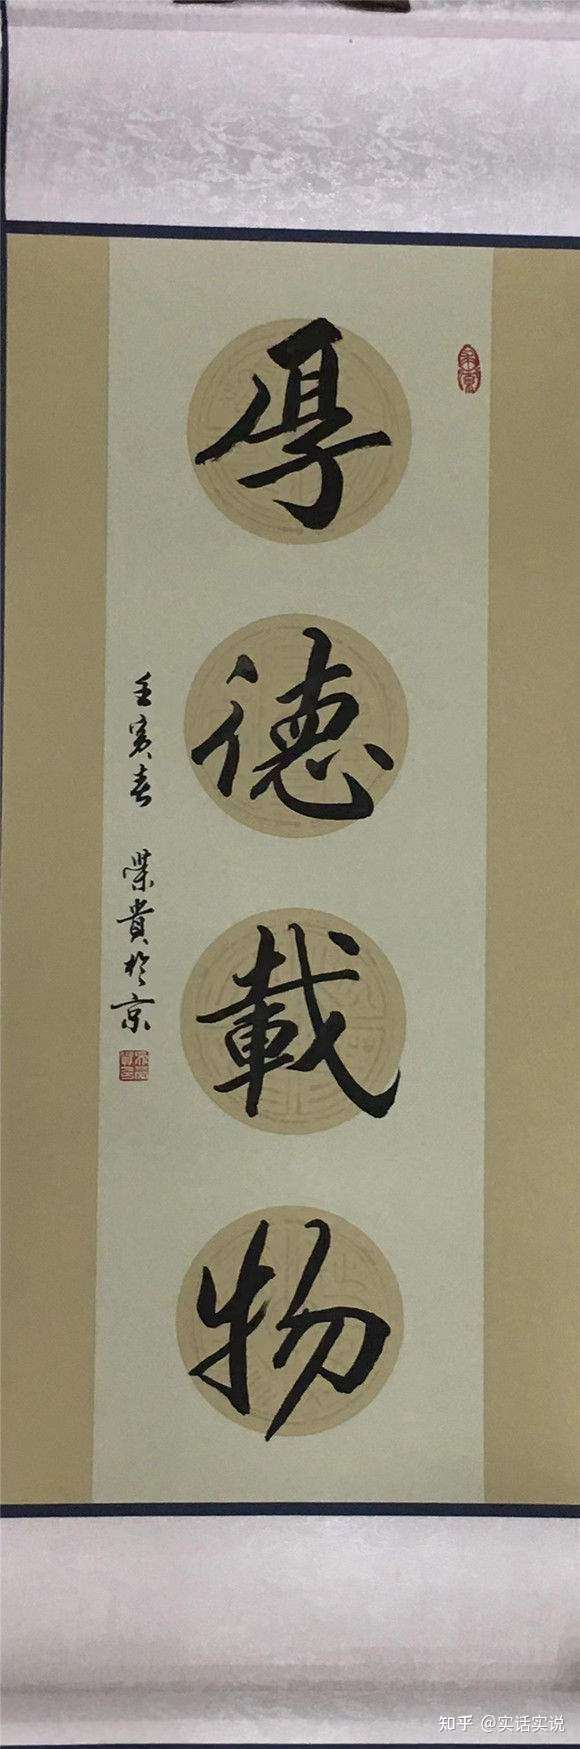 厚德載物
壬寅春 榮貴於京
知乎 @实话实说